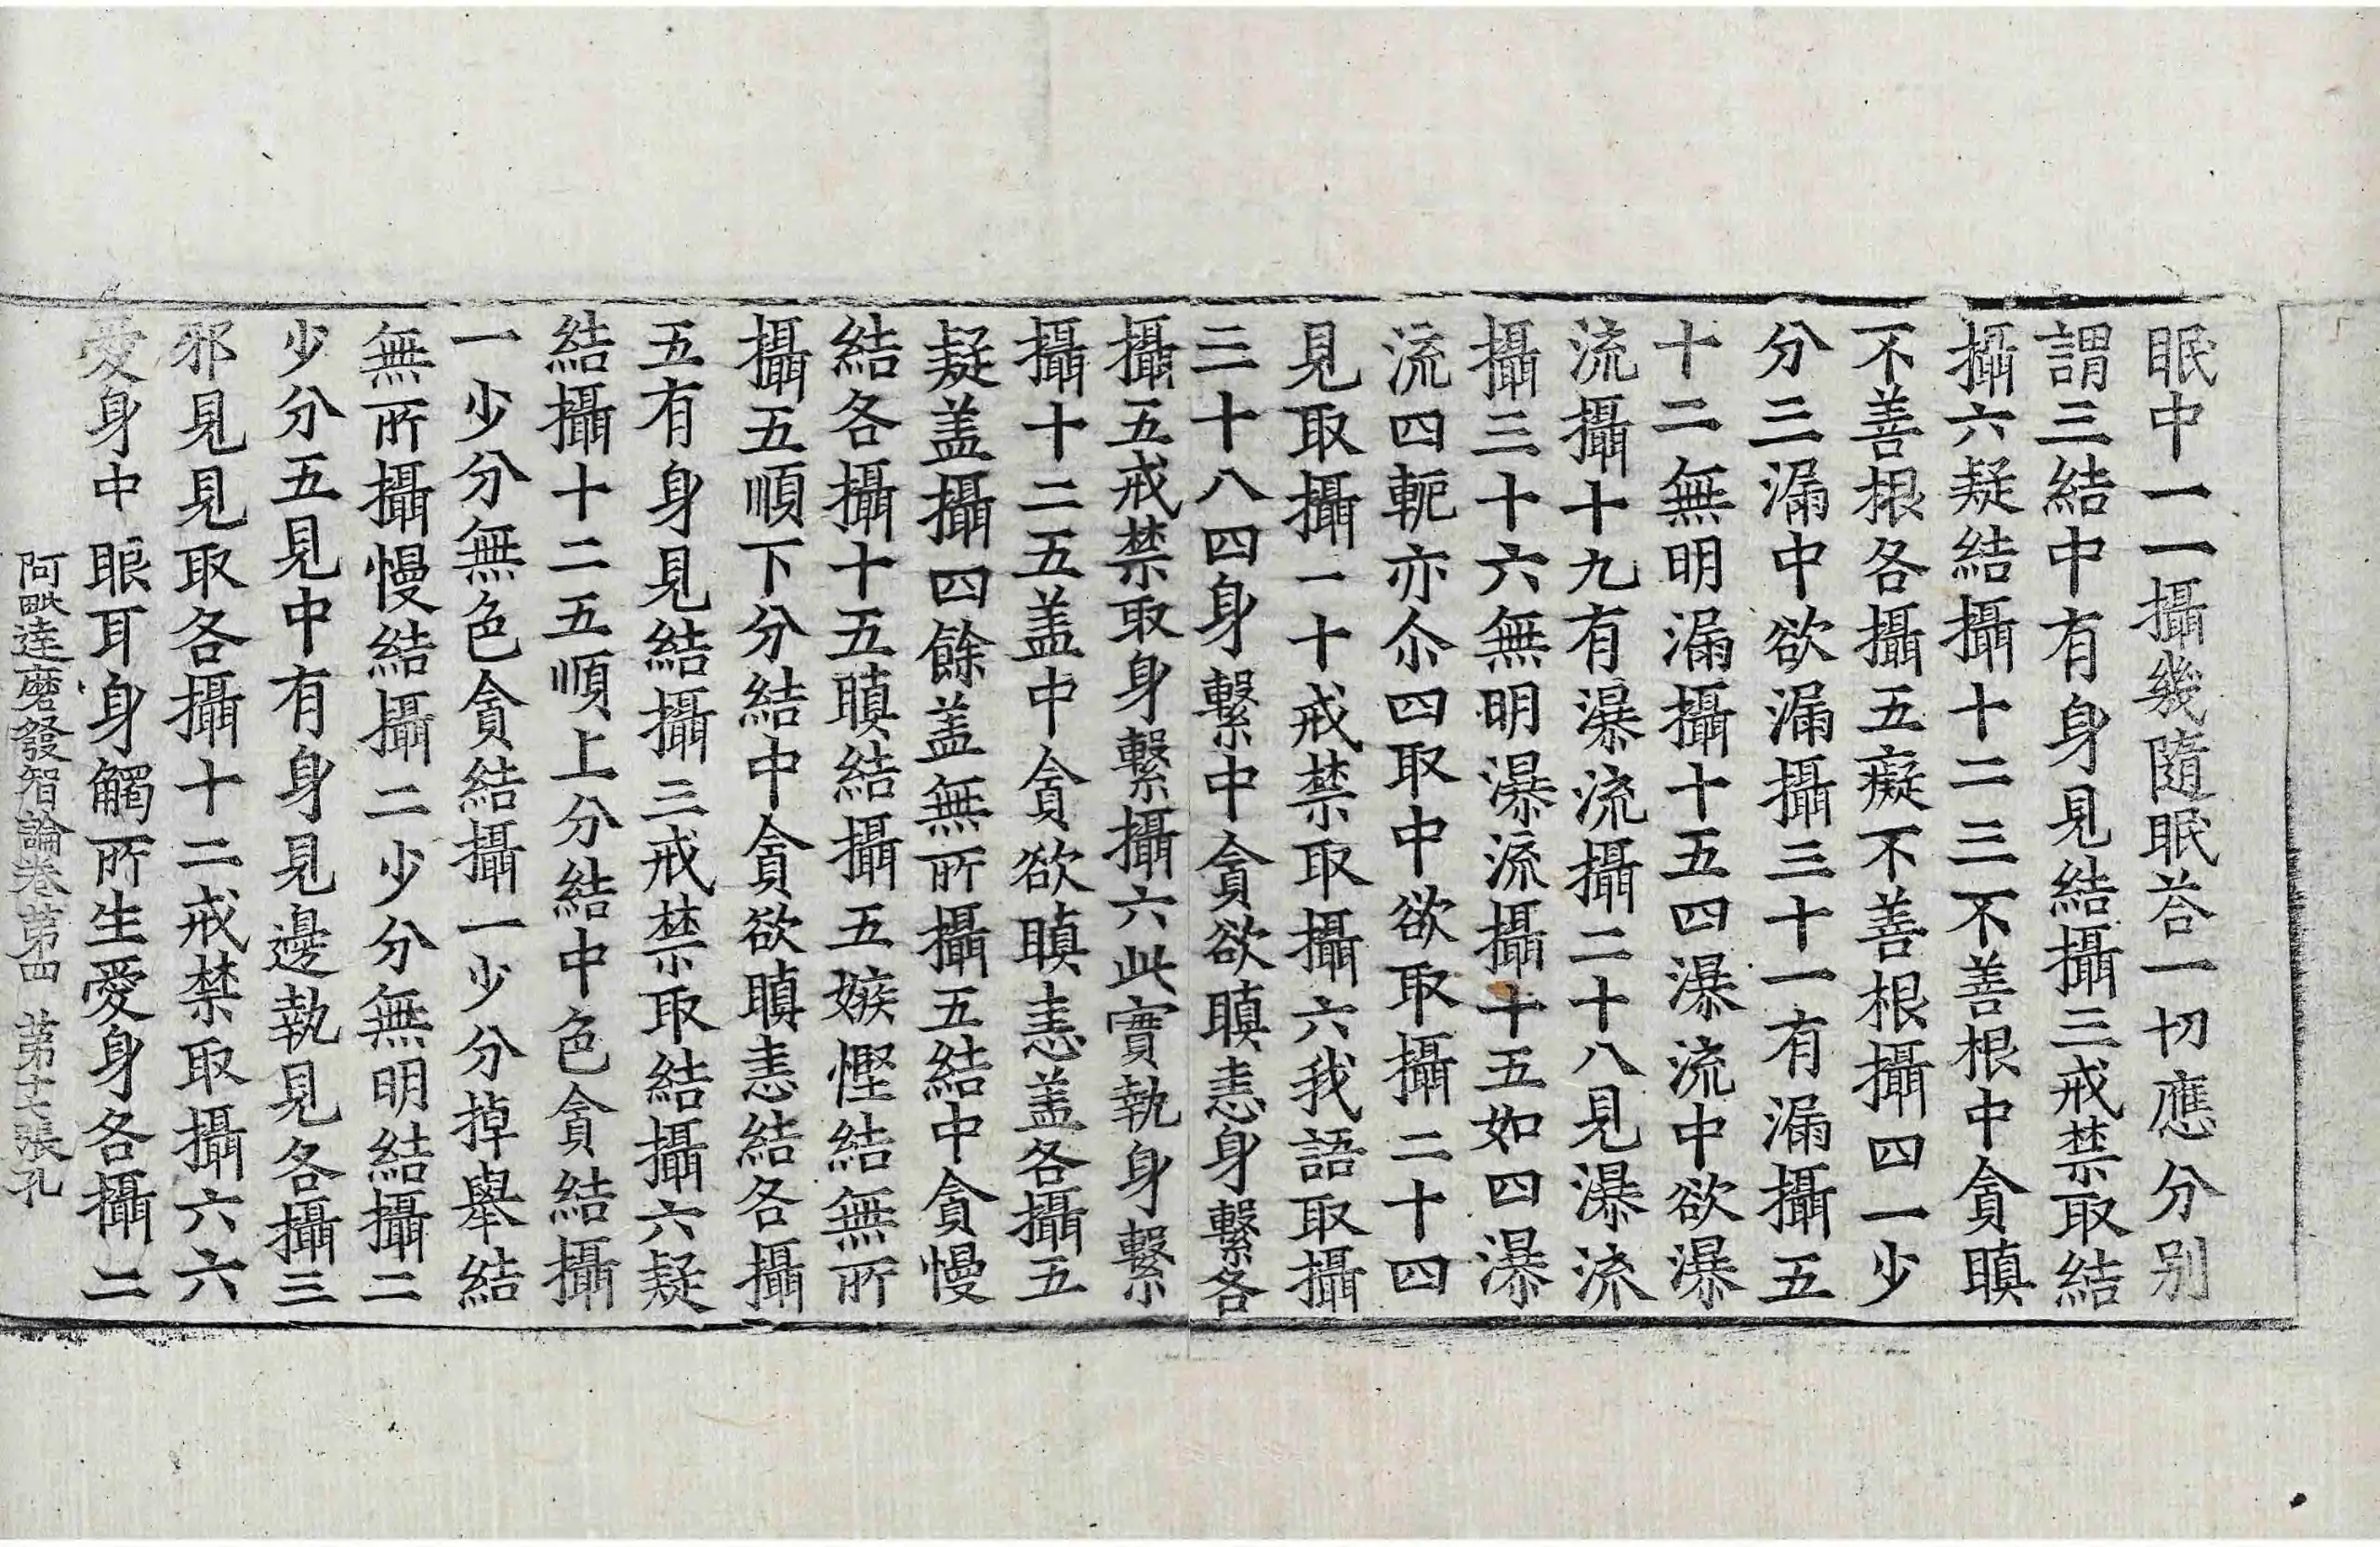 眠中一一攝幾隨眠荅一切應分别
謂三結中有身見結攝三戒禁取結
攝六疑結攝十二三不善根中貪瞋
不善根各攝五癡不善根攝四一少
分三漏中欲漏攝三十一有漏攝五
十二無明漏攝十五四瀑流中欲瀑
流攝十九有瀑流攝二十八見瀑流
攝三十六無明瀑流攝十五如四瀑
流四軛亦尒四取中欲取攝二十四
見取攝一十戒禁取攝六我語取攝
三十八四身繫中貪欲瞋恚身繫各
攝五戒禁取身繫攝六此實執身繫
攝十二五盖中貪欲瞋恚盖各攝五
疑盖攝四餘盖無所攝五結中貪慢
結各攝十五瞋結攝五嫉慳結無所
攝五順下分結中貪欲瞋恚結各攝
五有身見結攝三戒禁取結攝六疑
結攝十二五順上分結中色貪結攝
一少分無色貪結攝一少分掉舉結
無所攝慢結攝二少分無明結攝二
少分五見中有身見邊執見各攝三
邪見見取各攝十二戒禁取攝六六
愛身中眼耳身觸所生愛身各攝二
阿毗達磨發智論卷第四 第十七張孔